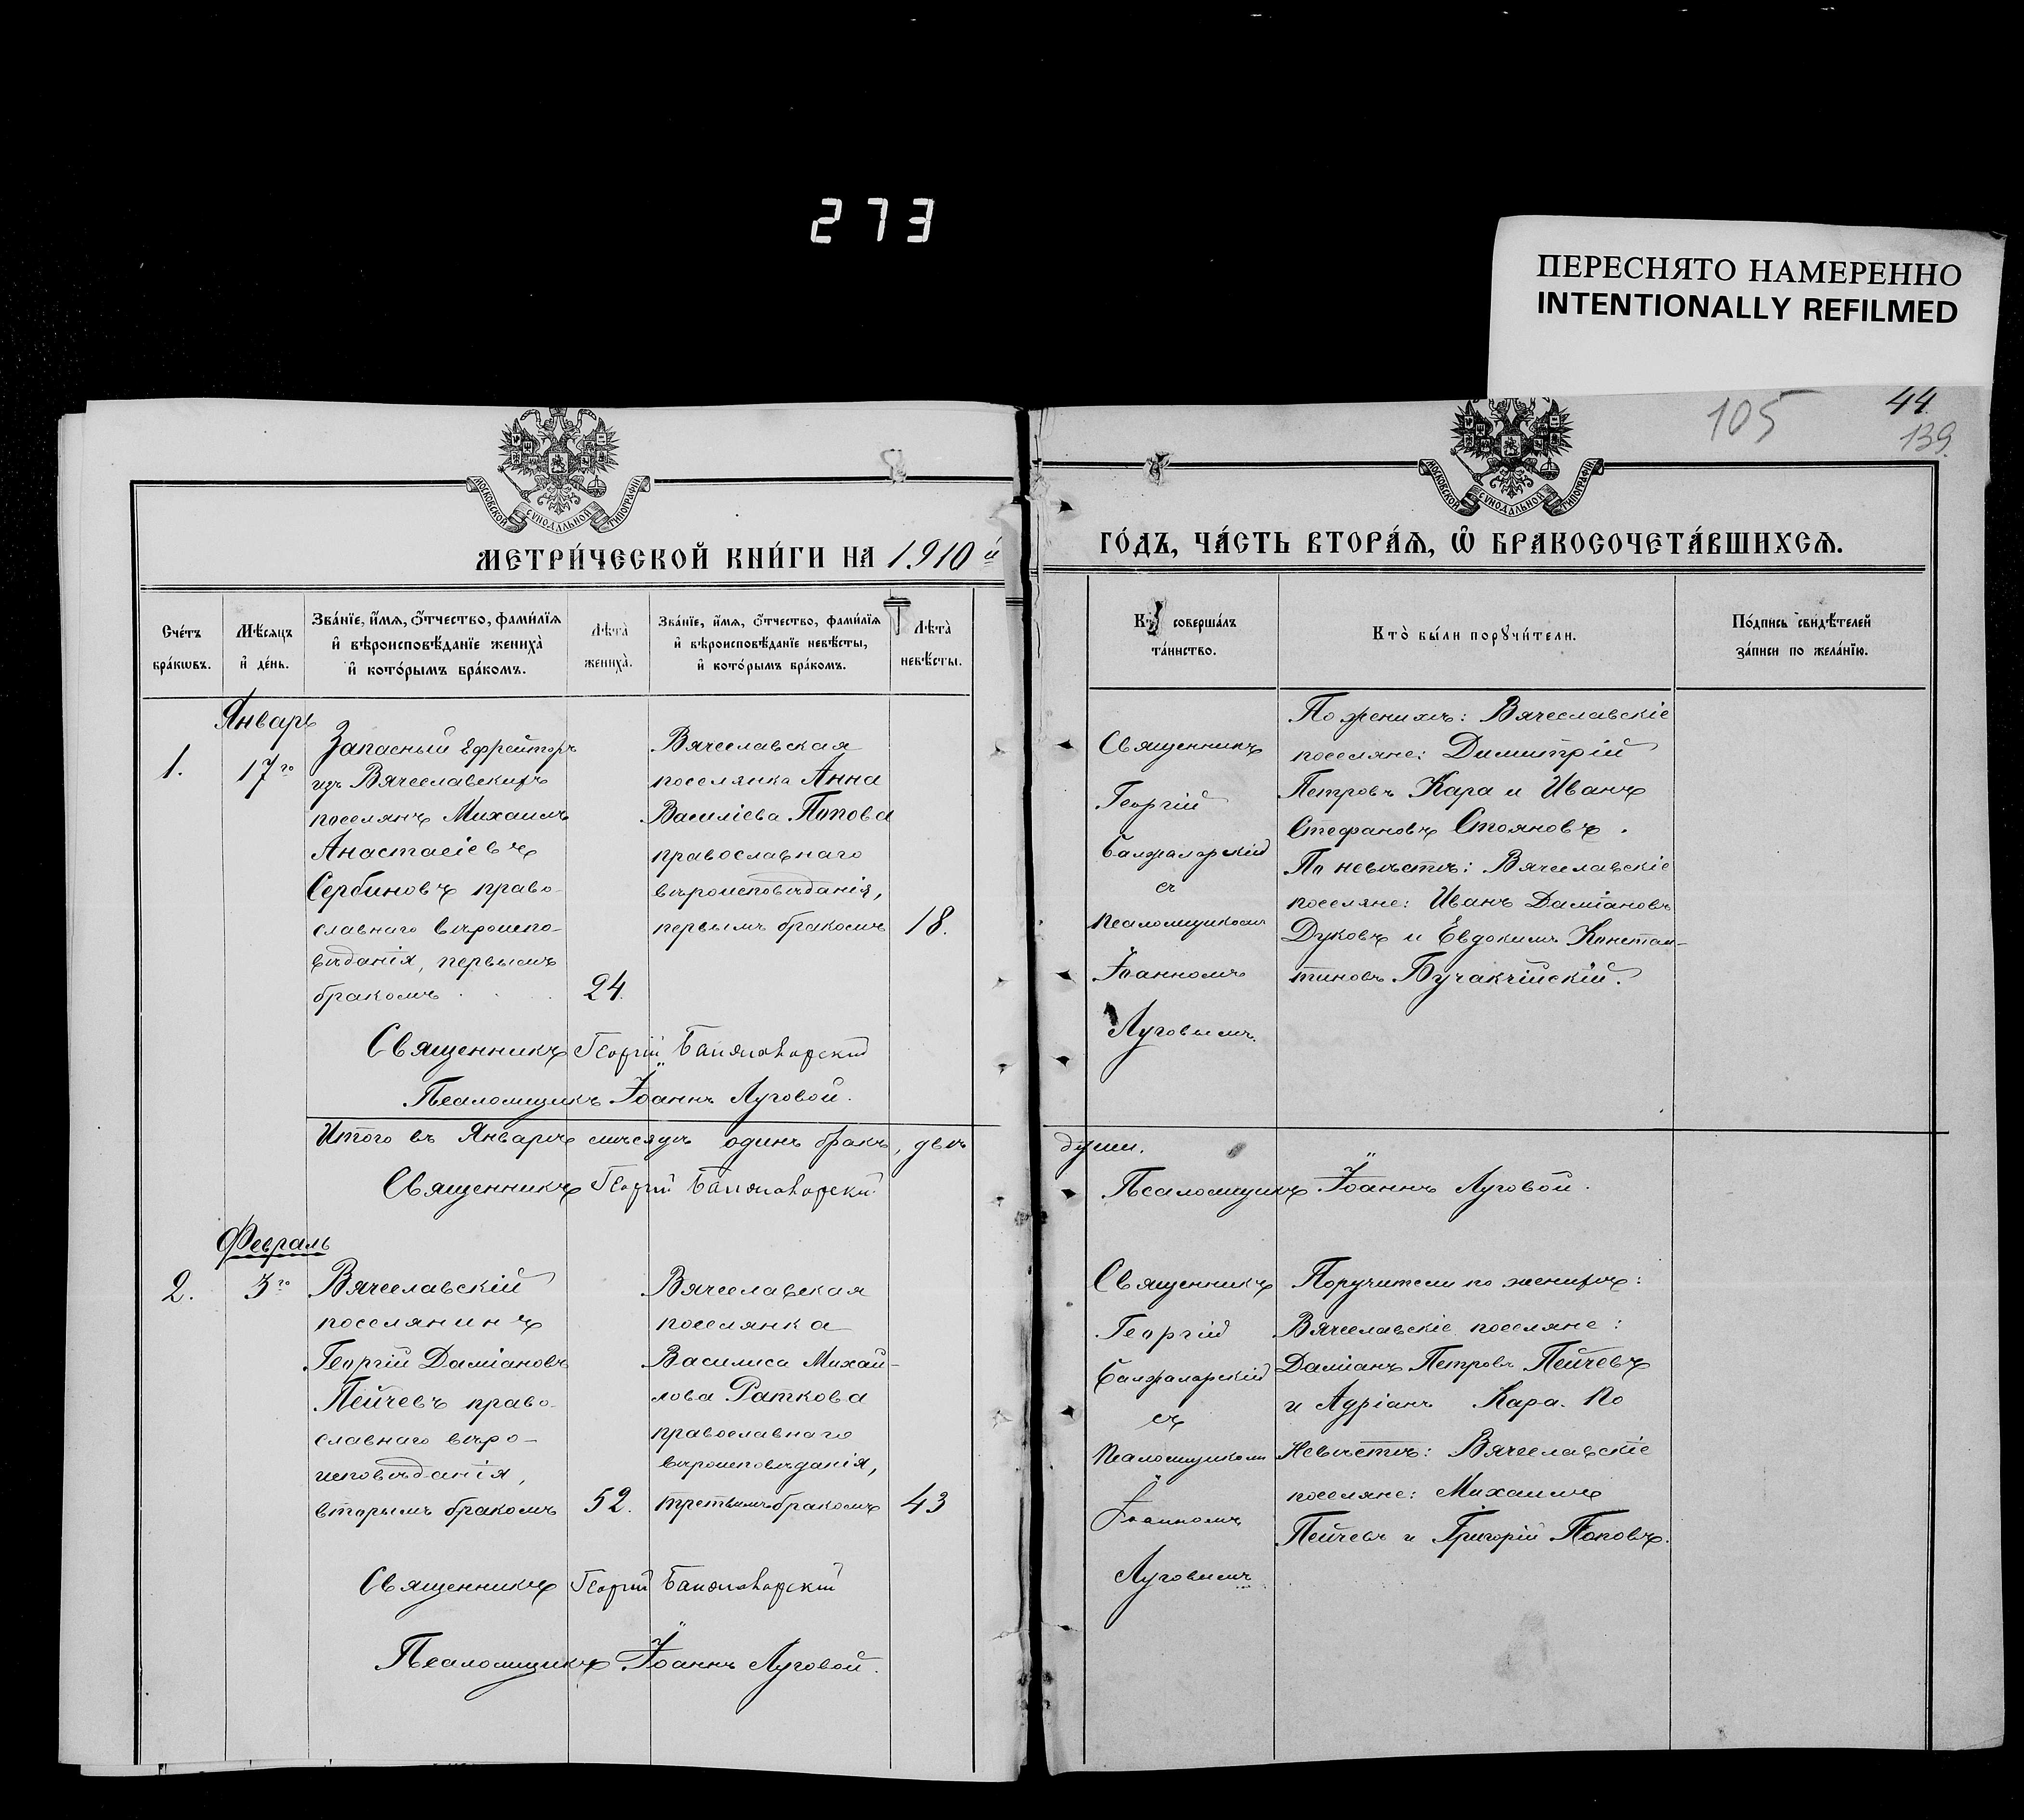 273
ПЕРЕСНЯТО НАМЕРЕННО
INTENTIONALLY REFILMED
105
44
139
МОСКОВСКОЙ СУНОДАЛЬНОЙ ТИПОГРАФІИ
МОСКОВСКОЙ СУНОДАЛЬНОЙ ТИПОГРАФІИ
МЕТРИ́ЧЕСКОЙ КНИ́ГИ НА 1910й
ГО́ДЪ, ЧА́СТЬ ВТОРА́Ѧ, Ѽ БРАКОСОЧЕТА́ВШИХСѦ.
Сче́тъ
бра́кѡвъ.
Мѣ́сяцъ
и҆ де́нь.
Зва́нїе, и҆́мѧ, ѻ҆́тчество, фами́лїѧ
и҆ вѣроисповѣ́данїе жениха̀
и҆ кото́рымъ бра́комъ.
Лѣта̀
жениха̀.
Зва́нїе, и҆́мѧ, ѻ҆́тчество, фами́лїѧ
и҆ вѣроисповѣ́данїе невѣ́сты,
и҆ кото́рымъ бра́комъ.
Лѣта̀
невѣ́сты.
Кто̀ соверша́лъ
та́инство.
Кто̀ бы́ли порꙋчи́тели.
По́дпись свидѣ́телей
за́писи по жела́нїю.
Январь
1.
17го
Запасный ефрейторъ
изъ Вячеславскихъ
поселянъ Михаилъ
Анастасіевъ
Сербиновъ право-
славнаго вѣроиспо-
вѣданія, первымъ
бракомъ
24.
Вячеславская
поселянка Анна
Василіева Попова
православнаго
вѣроисповѣданія,
первымъ бракомъ
18.
Священникъ
Георгій
съ
псаломщикомъ
Іоанномъ
Луговымъ.
По женихѣ: Вячеславскіе
поселяне: Димитрій
Петровъ Кара и Иванъ
Стефановъ Стояновъ.
По невѣстѣ: Вячеславскіе
поселяне: Иванъ Даміановъ
Дуковъ и Евдокимъ Констан-
тиновъ Бучакчійскій.
Священникъ Георгій
Псаломщикъ Іоаннъ Луговой.
Итого въ Январѣ мѣсяцѣ одинъ бракъ, двѣ
души.
Священникъ Георгій
Псаломщикъ Іоаннъ Луговой.
Февраль
2.
3го
Вячеславскій
поселянинъ
Георгій Даміановъ
Пейчевъ право-
славнаго вѣро-
исповѣданія,
вторымъ бракомъ
52.
Вячеславская
поселянка
Василиса Михай-
лова Раткова
православнаго
вѣроисповѣданія,
третьимъ бракомъ
43
Священникъ
Георгій
съ
псаломщикомъ
Іоанномъ
Луговымъ
Поручители по женихѣ:
Вячеславскіе поселяне:
Даміанъ Петровъ Пейчевъ
и Адріанъ Кара. По
невѣстѣ: Вячеславскіе
поселяне: Михаилъ
Пейчевъ и Григорій Поповъ.
Священникъ Георгій
Псаломщикъ Іоаннъ Луговой.